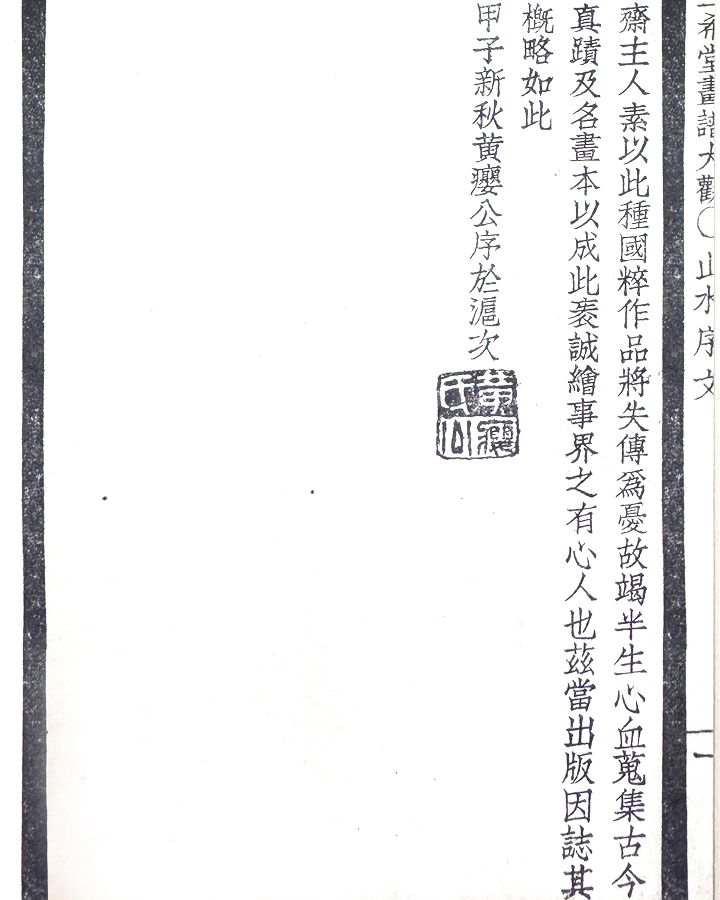 希堂畫譜大觀〇山水序文 二
齋主人素以此種國粹作品將失傳爲憂故竭半生心血蒐集古今
真蹟及名畫本以成此袠誠繪事界之有心人也茲當出版因誌其
概略如此
甲子新秋黄癭公序於滬次
黄癭公氏